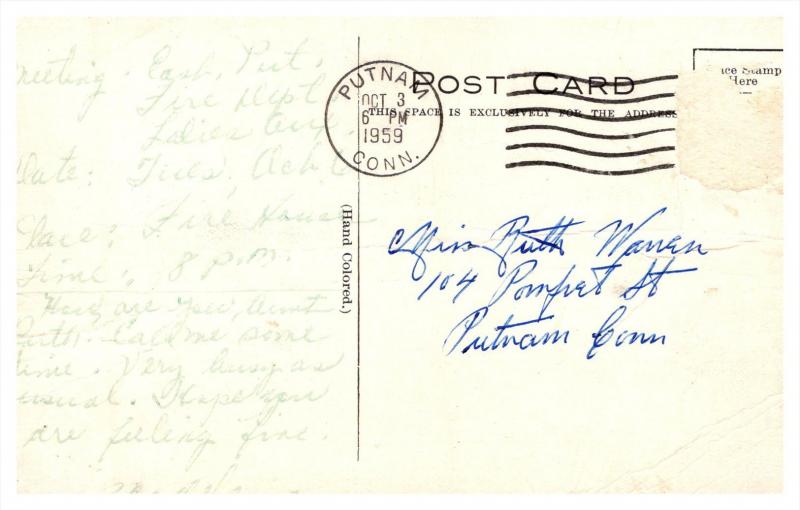 Meeting. East. Put.
Fire Dept
Ladies Aux.
Date: Tues, Oct. 6
Place: Fire House
Time: 8 p.m.
How are you, Aunt
Ruth. Call me some
time. Very busy as
usual. Hope you
are feeling fine.
PUTNAM
OCT 3
6 PM
1959
CONN.
POST CARD
THIS SPACE IS EXCLUSIVELY FOR THE ADDRESS
Stamp
Here
(Hand Colored.)
Miss Ruth Warren
104 Pomfret St
Putnam Conn